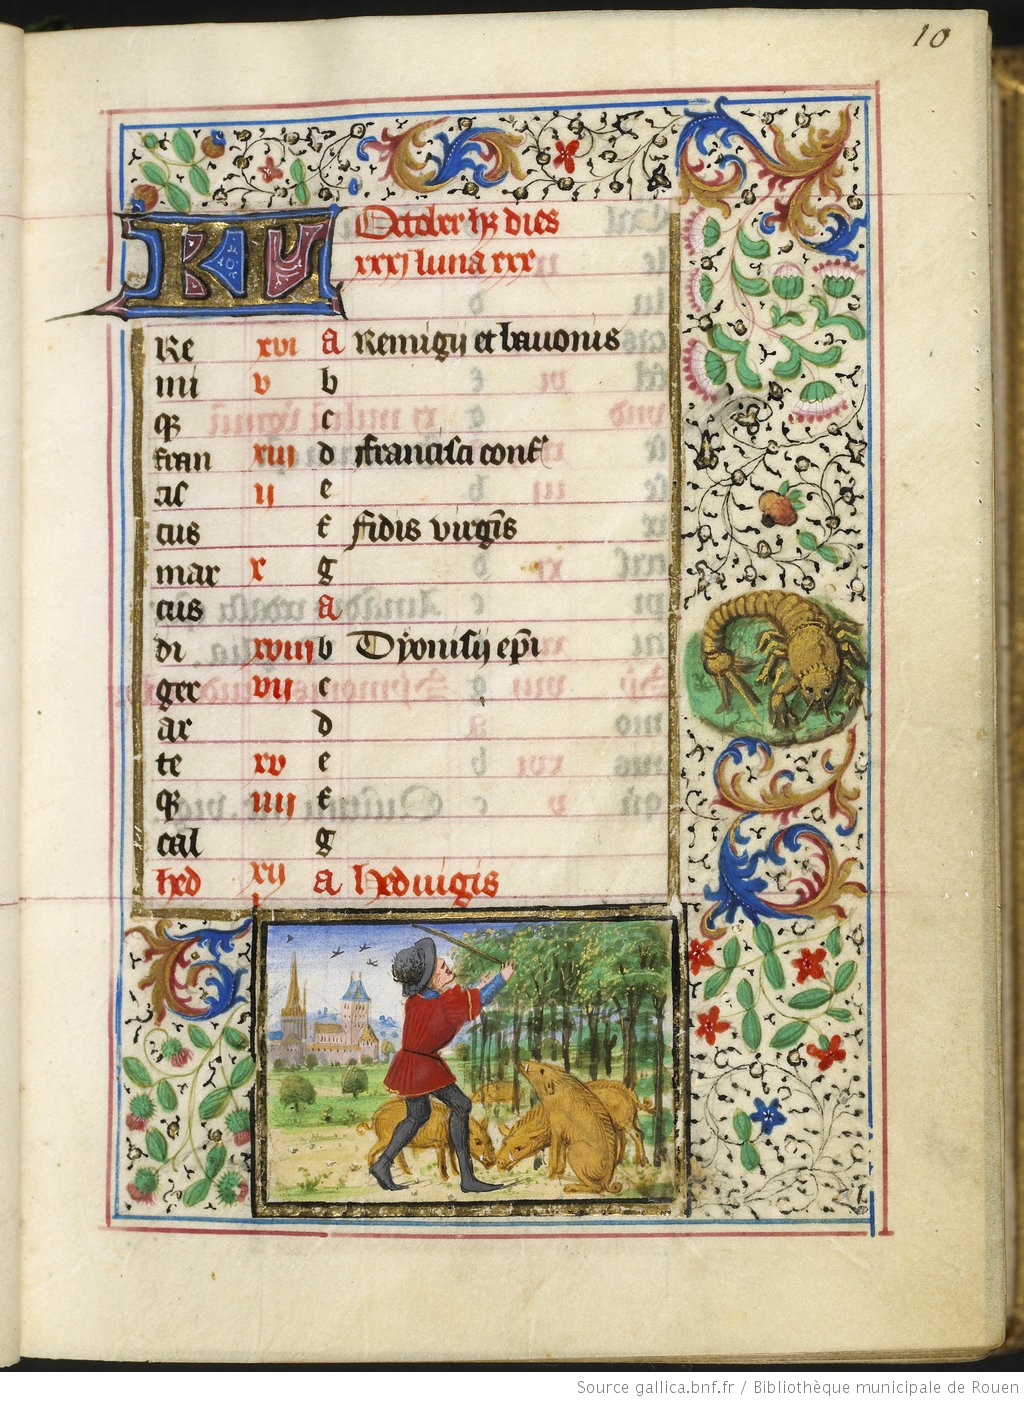 10
KL October hꝫ dies
xxxj luna xxx
Re xvi a Remigij et bauonis
mi v b
qꝫ c
fran xiij d Francisci conf
as ij e
cus f Fidis virgīs
mar x g
cus a
di xviij b Dyonisij ep̄i
ger vij c
ar d
te xv e
qꝫ iiij f
cal g
hed xij a Hedwigis
Source gallica.bnf.fr / Bibliothèque municipale de Rouen